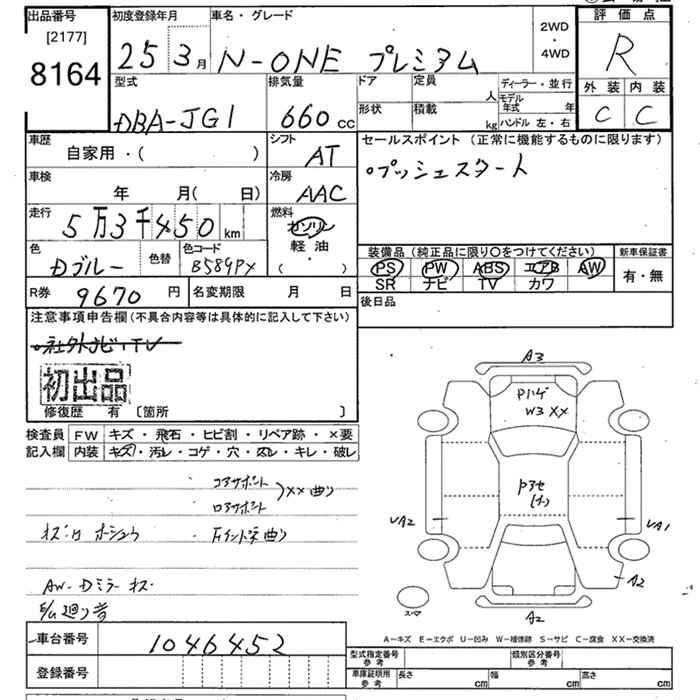 出品番号
[2177]
8164
初度登録年月
25 3月
車名・グレード
N-ONE プレミアム
2WD
・
4WD
評価点
R
外装 内装
C C
型式
DBA-JG1
排気量
660cc
ドア
定員
人
形状
積載
kg
ディーラー・並行
モデル年式 年
ハンドル 左・右
車歴
自家用・( )
シフト
AT
セールスポイント (正常に機能するものに限ります)
○プッシュスタート
車検
年 月( 日)
冷房
AAC
走行
5万3千450km
燃料
ガソリン
軽油
( ・ )
色
Dブルー
色替
色コード
B589PX
装備品 (純正品に限り○をつけてください)
PS PW ABS エアB AW
SR ナビ TV カワ
新車保証書
有・無
R券 9670円
名変期限 月 日
後日品
注意事項申告欄(不具合内容等は具体的に記入して下さい)
○社外ナビ、TV
初出品
修復歴 有 〔箇所 〕
検査員 FW キズ・飛石・ヒビ割・リペア跡・×要
記入欄 内装 キズ・汚レ・コゲ・穴・凹レ・キレ・破レ
コアサポート
ロアサポート
XX 曲り
AW-Dミラーキズ
A3
Pハゲ
W3 XX
UA2
UA1
A2
スマ
A2
A-キズ E-エクボ U-凹み W-補修跡 S-サビ C-腐食 XX-交換済
車台番号 1046452
登録番号
型式指定番号 参考
類別区分番号 参考
車庫証明用 参考
長さ cm
幅 cm
高さ cm